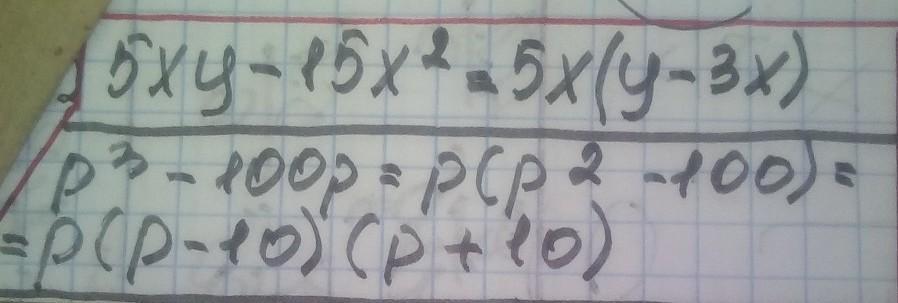 5xy - 15x² = 5x(y - 3x)
p³ - 100p = p(p² - 100) =
= p(p - 10)(p + 10)